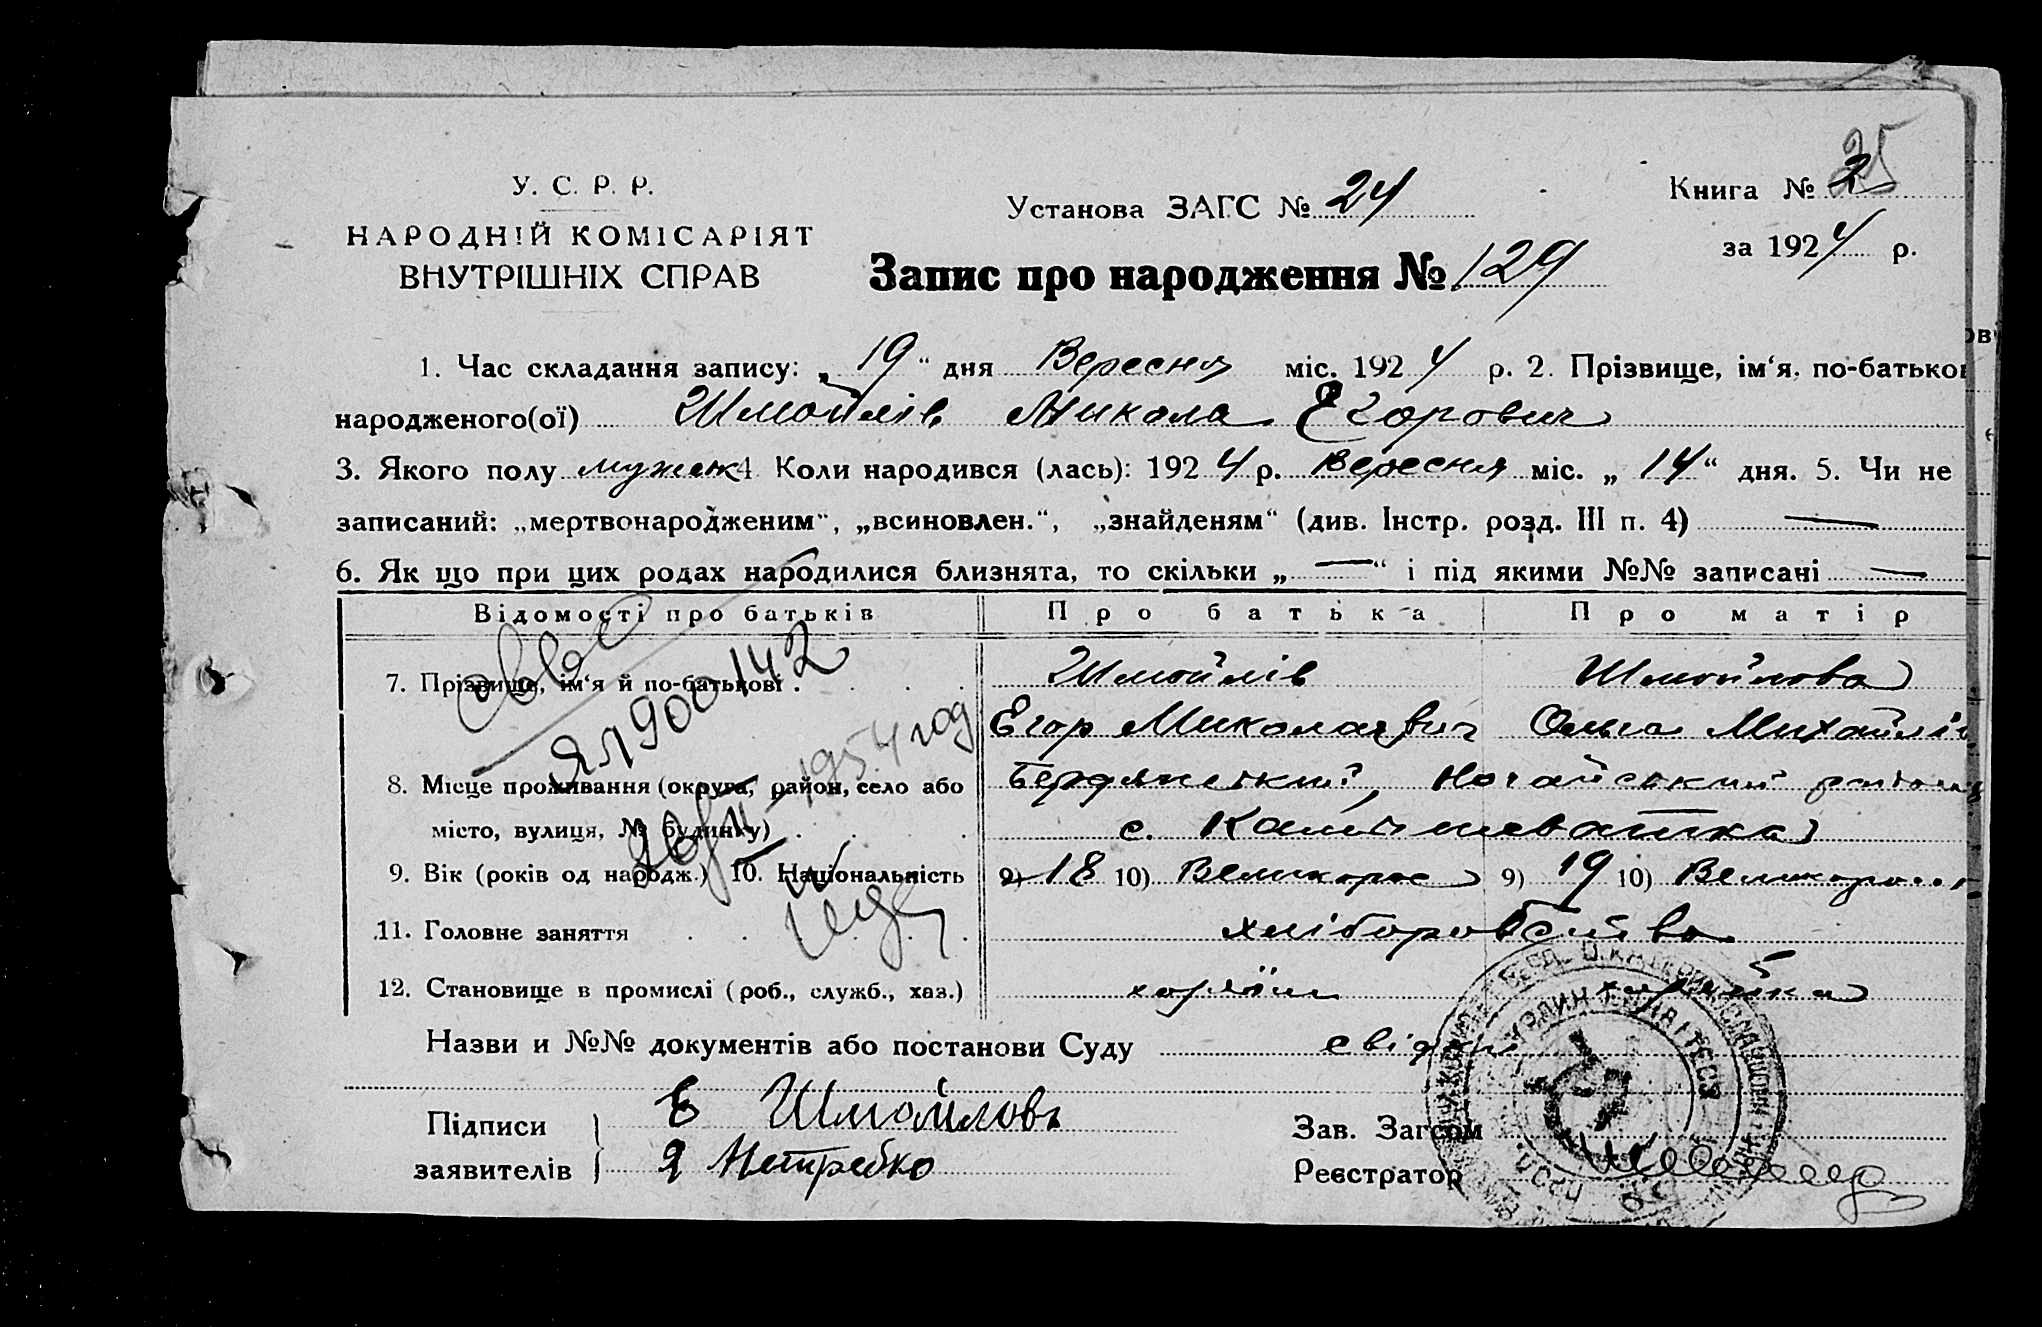 25
У. С. Р. Р.
НАРОДНІЙ КОМІСАРІЯТ
ВНУТРІШНІХ СПРАВ
Установа ЗАГС № 24
Книга № 2
за 1924 р.
Запис про народження № 129
1. Час складання запису: „ 19 “ дня Вересня міс. 1924 р. 2. Прізвище, ім‘я, по-батькові
народженого(ої) Шмойлів Микола Єгорович
3. Якого полу мужеск 4 Коли народився (лась): 1924 р. Вересня міс. „ 14 “ дня. 5. Чи не
записаний: „мертвонародженим“, „всиновлен.“, „знайденям“ (див. Інстр. розд. III п. 4) —
6. Як що при цих родах народилися близнята, то скільки „ — “ і під якими №№ записані —
Відомості про батьків Про батька Про матір
7. Прізвище, ім‘я й по-батькові . Шмойлів Шмойлова
Егор Миколаєвич Ольга Михайлів
8. Місце проживання (округа, район, село або Бердянський, Ногайський район
місто, вулиця, № будинку) с. Камишеватка
9. Вік (років од народж.) 10. Національність 9) 18 10) Великорос 9) 19 10) Великорос
11. Головне заняття хліборобство
12. Становище в промислі (роб., служб., хаз.) хазяїн хазяйка
Назви и №№ документів або постанови Суду свідки
Підписи заявителів
Е Шмойловъ
Я Нетребко
Зав. Загсом
Реєстратор
ЯЛ 900142
1954 год